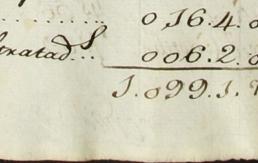 .......... 0,16.4.0
tratad.s... 006.2.0
1.099.1.